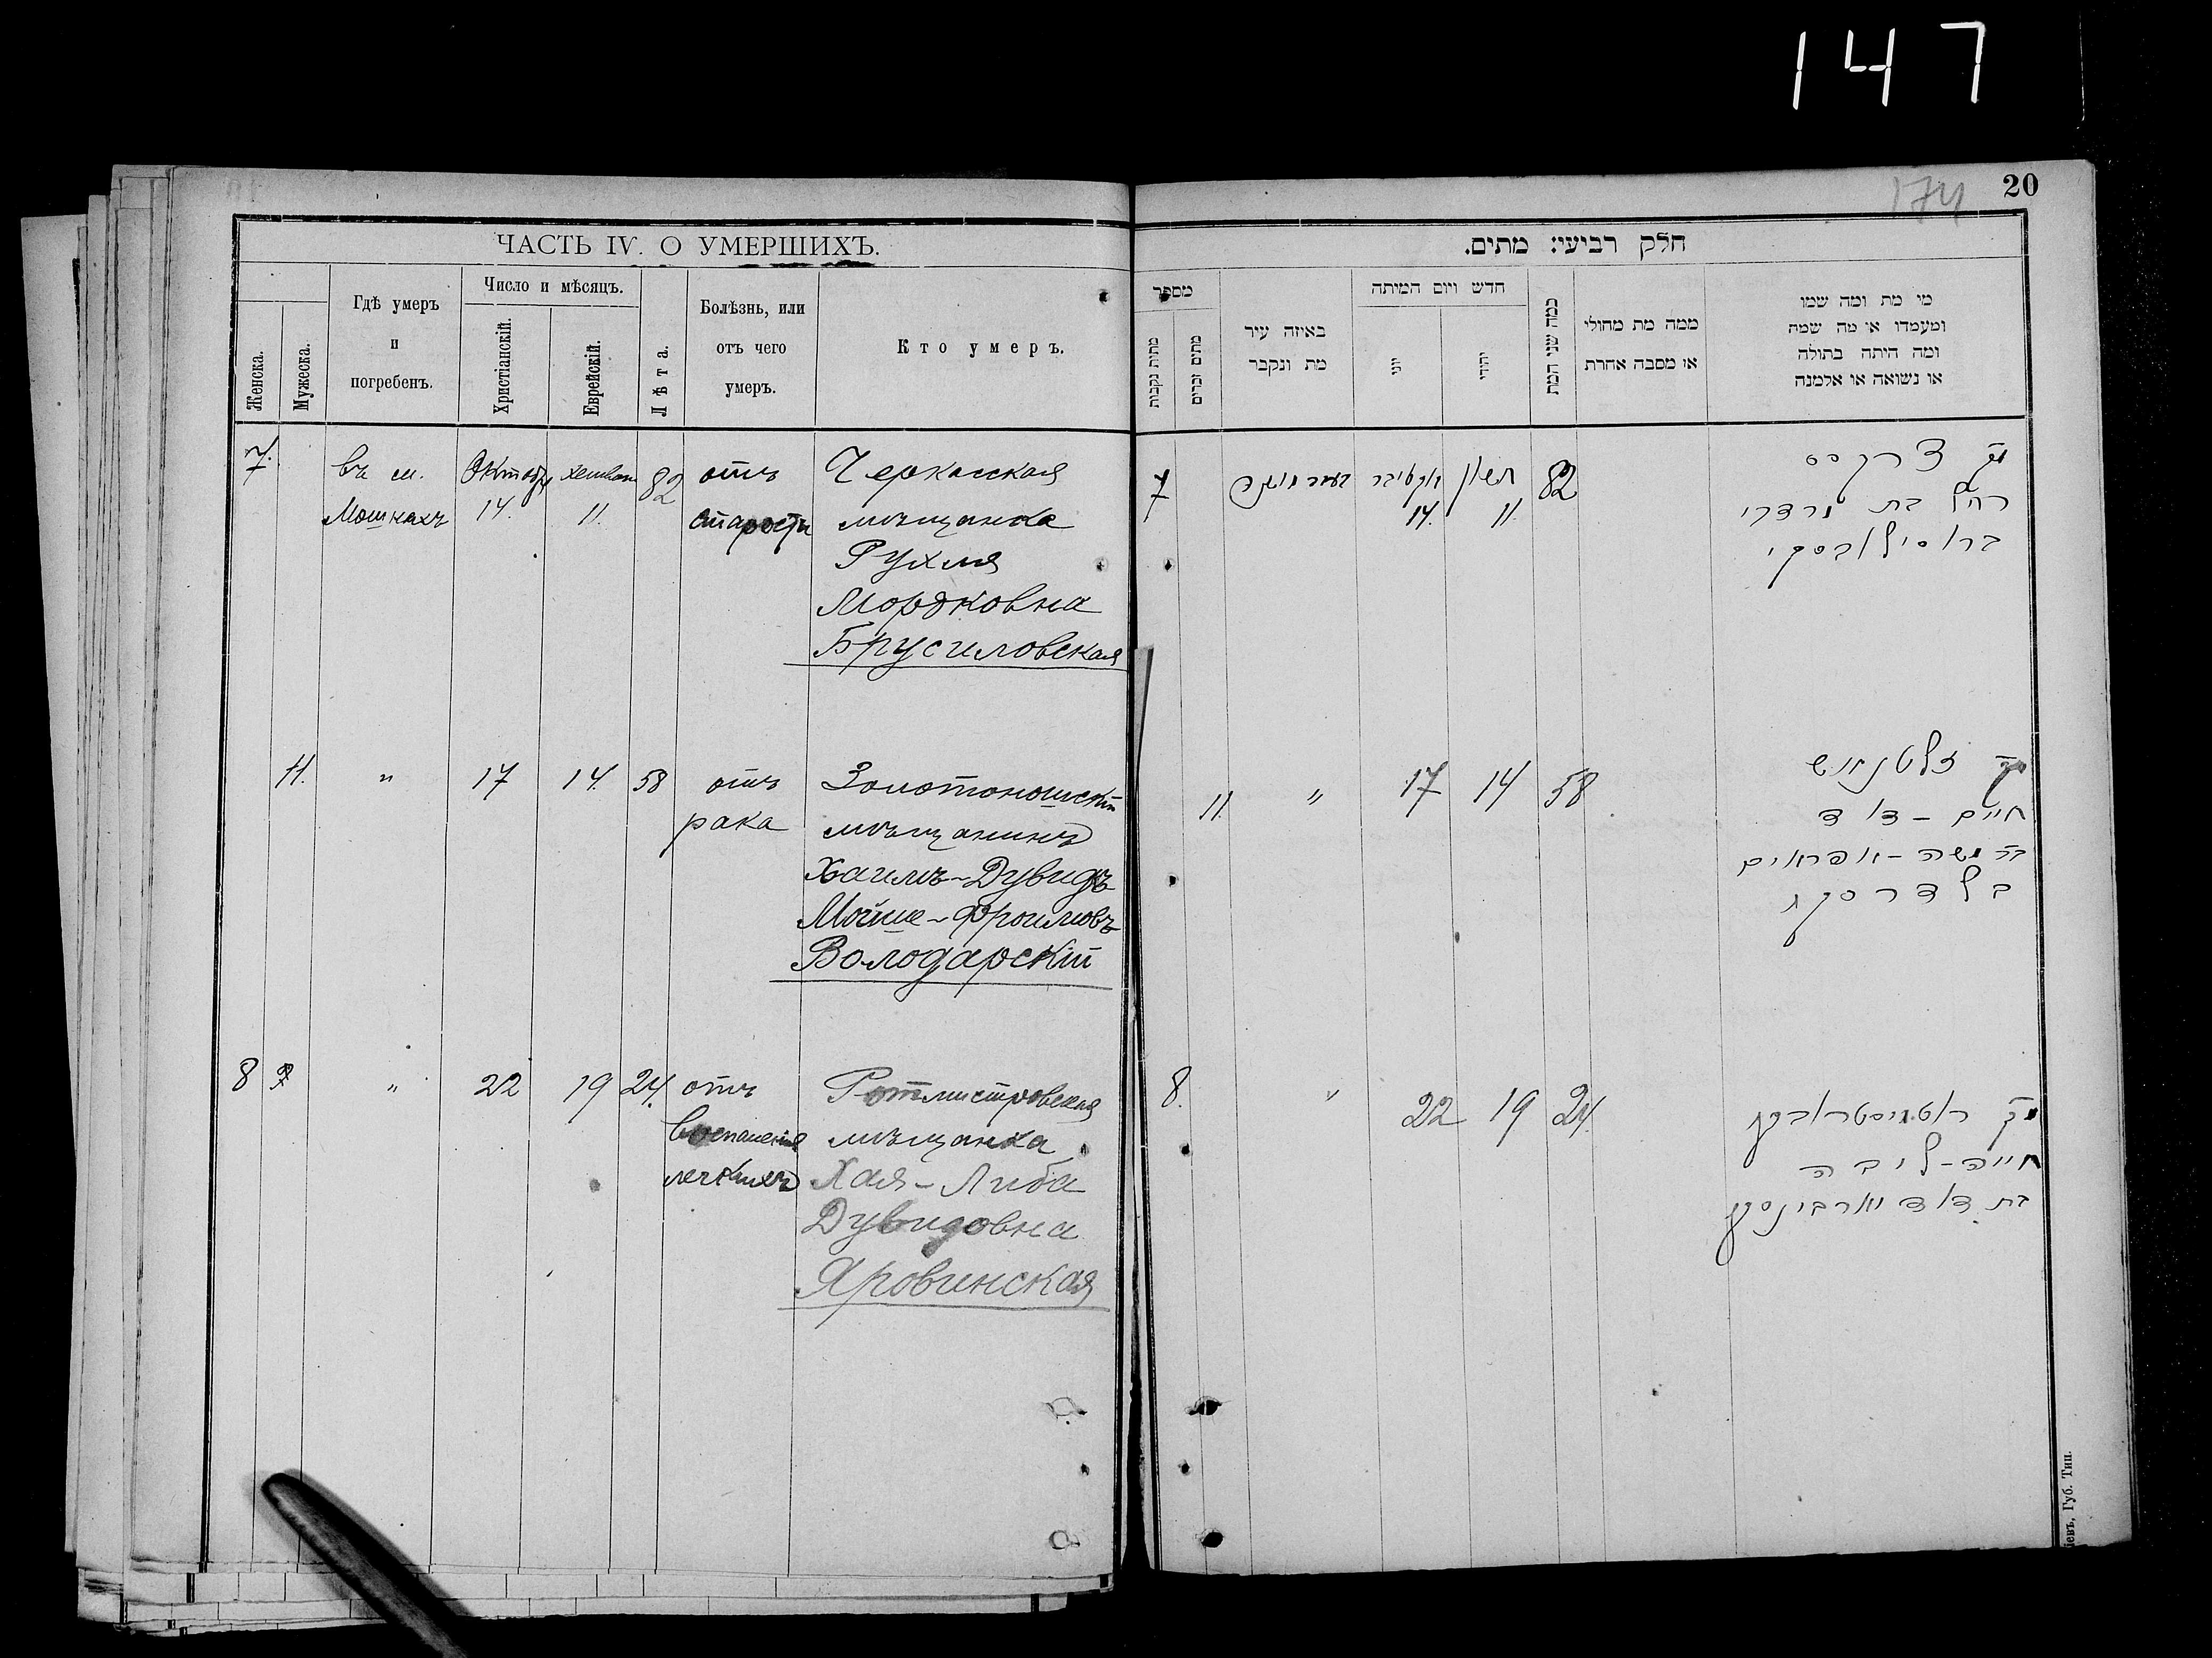 147
174
20
ЧАСТЬ IV. О УМЕРШИХЪ.
Женска.
Мужеска.
Гдѣ умеръ
и
погребенъ.
Число и мѣсяцъ.
Христіанскій.
Еврейскій.
Лѣта.
Болѣзнь, или
отъ чего
умеръ.
Кто умеръ.
7.
въ м.
Мошнахъ
Октобр
14.
хешван
11.
82
отъ
старости
Черкасская
мѣщанка
Рухля
Мордковна
Брусиловская
11.
"
17
14.
58
отъ
рака
Золотоношскій
мѣщанинъ
Хаимъ-Дувидъ
Мойше-Фроимовъ
Володарскій
8
"
22
19
24.
отъ
воспаленія
легкихъ
Ротмистровская
мѣщанка
Хая-Либа
Дувидовна
Яровинская
חלק רביעי: מתים.
מספר
מתות נקבות
מתים זכרים
באיזה עיר
מת ונקבר
חדש ויום המיתה
יוני
יהודי
כמה שני המת
ממה מת מחולי
או מסבה אחרת
מי מת ומה שמו
ומעמדו או מה שמה
ומה היתה בתולה
או נשואה או אלמנה
7
אקטיבר
14.
חשון
11.
82
רחל בת מרדכי
ברוסילובסקי
11.
"
17
14
58
חיים-דוד
בר משה-אפראים
8.
"
22
19
24.
חייה-ליבה
בת דוד יארבינסקי
іевъ, Губ. Тип.